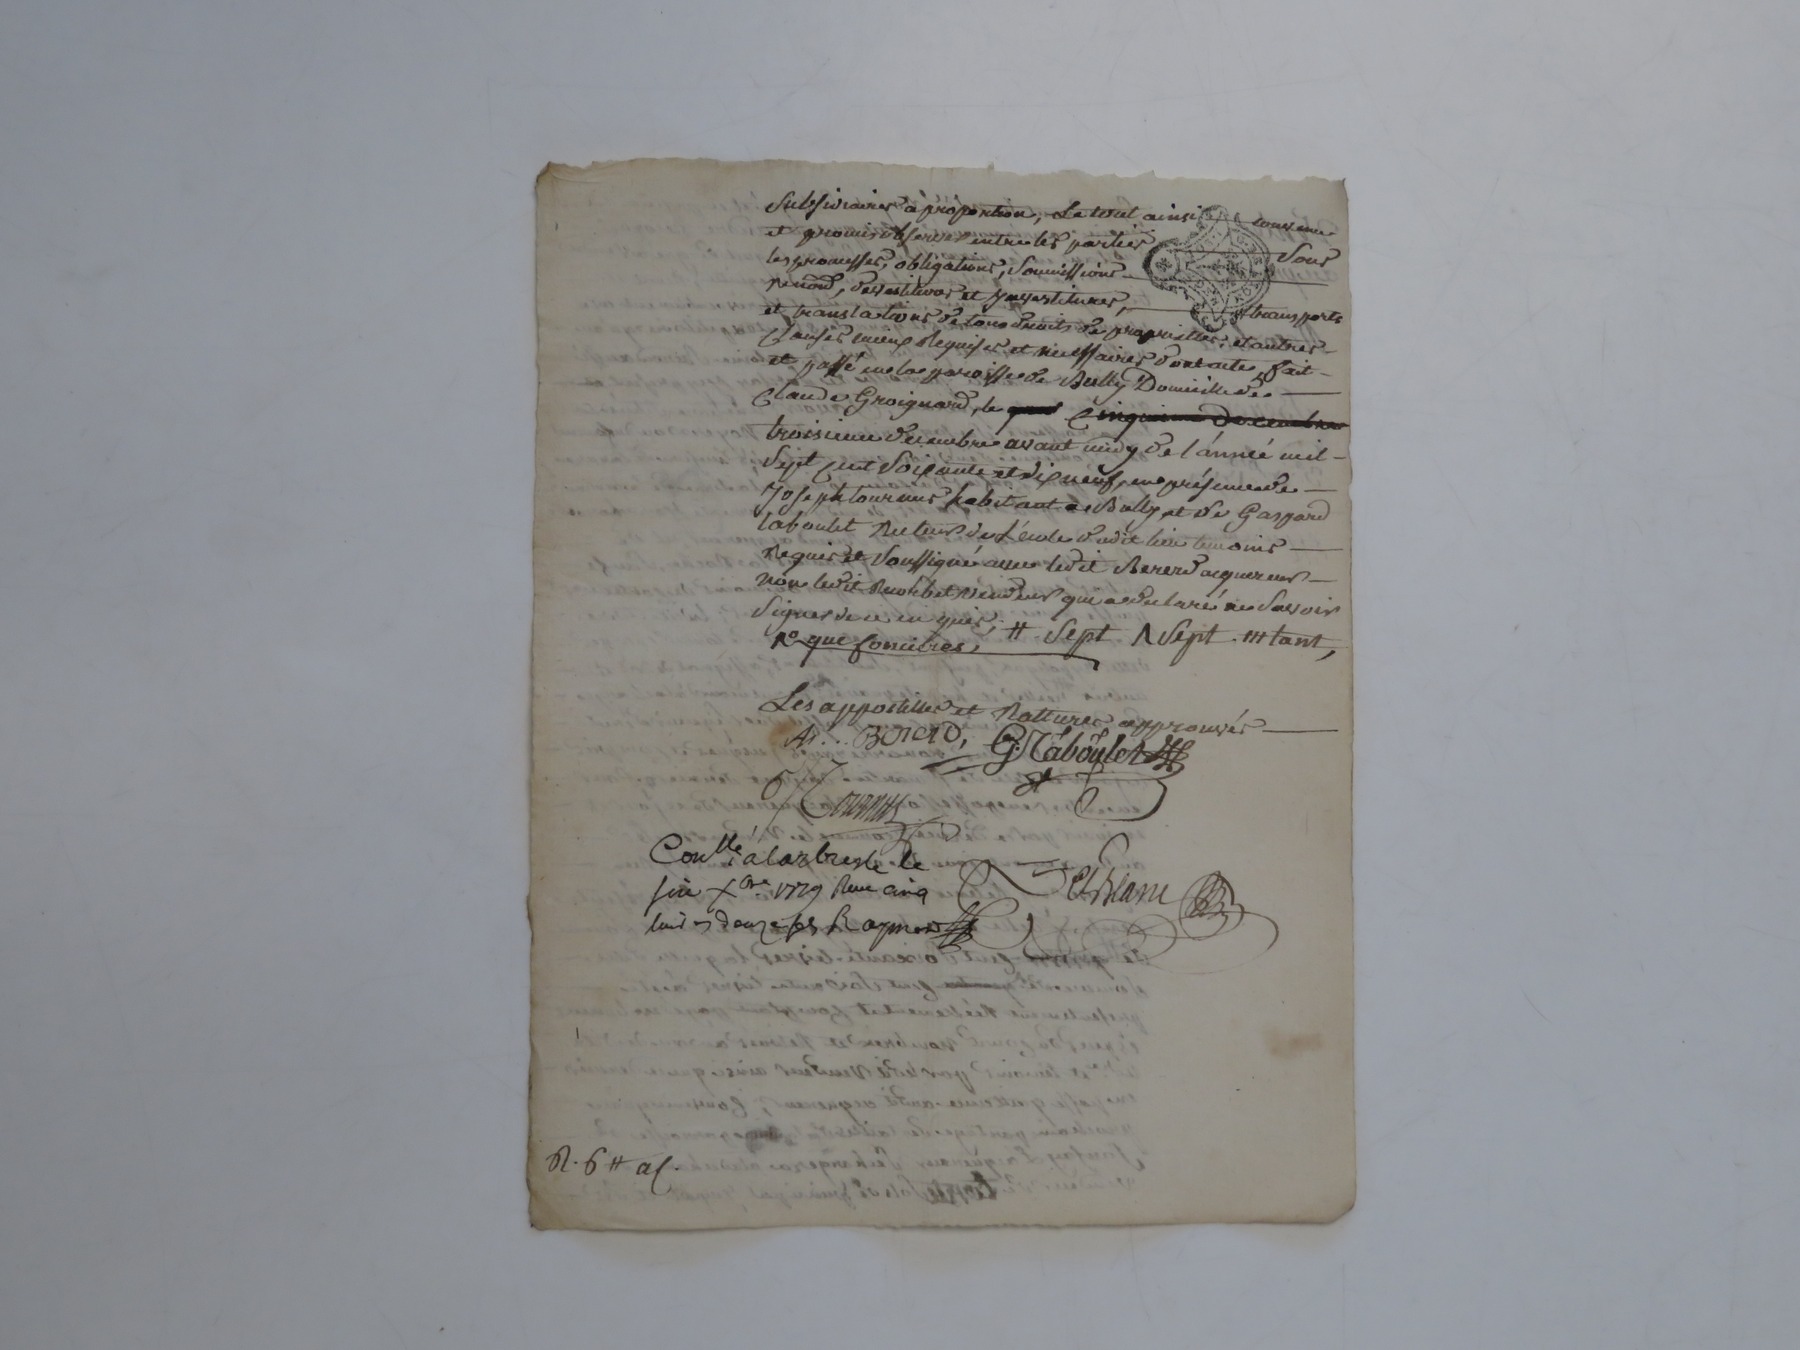 Subsidiaires a proportion, Le tout ainsi convenu
et promis observer entre les parties Sous
les promesses, obligations, Soumissions
renond, devestitures et Jnvestitures, transports
et translations de tous droits de proprietter, et autres
Clauses mieux Requises et necessaires dont acte, fait
et passé en la paroisse de Bully Domicille de
Claude Groignard, le cinquieme decembre
troisieme decembre avant midy de l'année mil
Sept cent Soixante et dix neuf, en presence de
Joseph tournus habitant a Bully, et de Gaspard
taboulet Recteur de L'école dudit lieu temoins
Requis et Soussigné avec ledit Bererd acquereur
non ledit vendeur qui a declaré ne Savoir
Signer de ce enquis, # Sept Sept tant,
que foncieres.
Les appostilles et Rattures approuvés
Bererd, G. Taboulet
Tournus
Conllé a larbresle le
six Xbre 1779 Reçu cinq
livres douze sols Raymond
R. 6 #